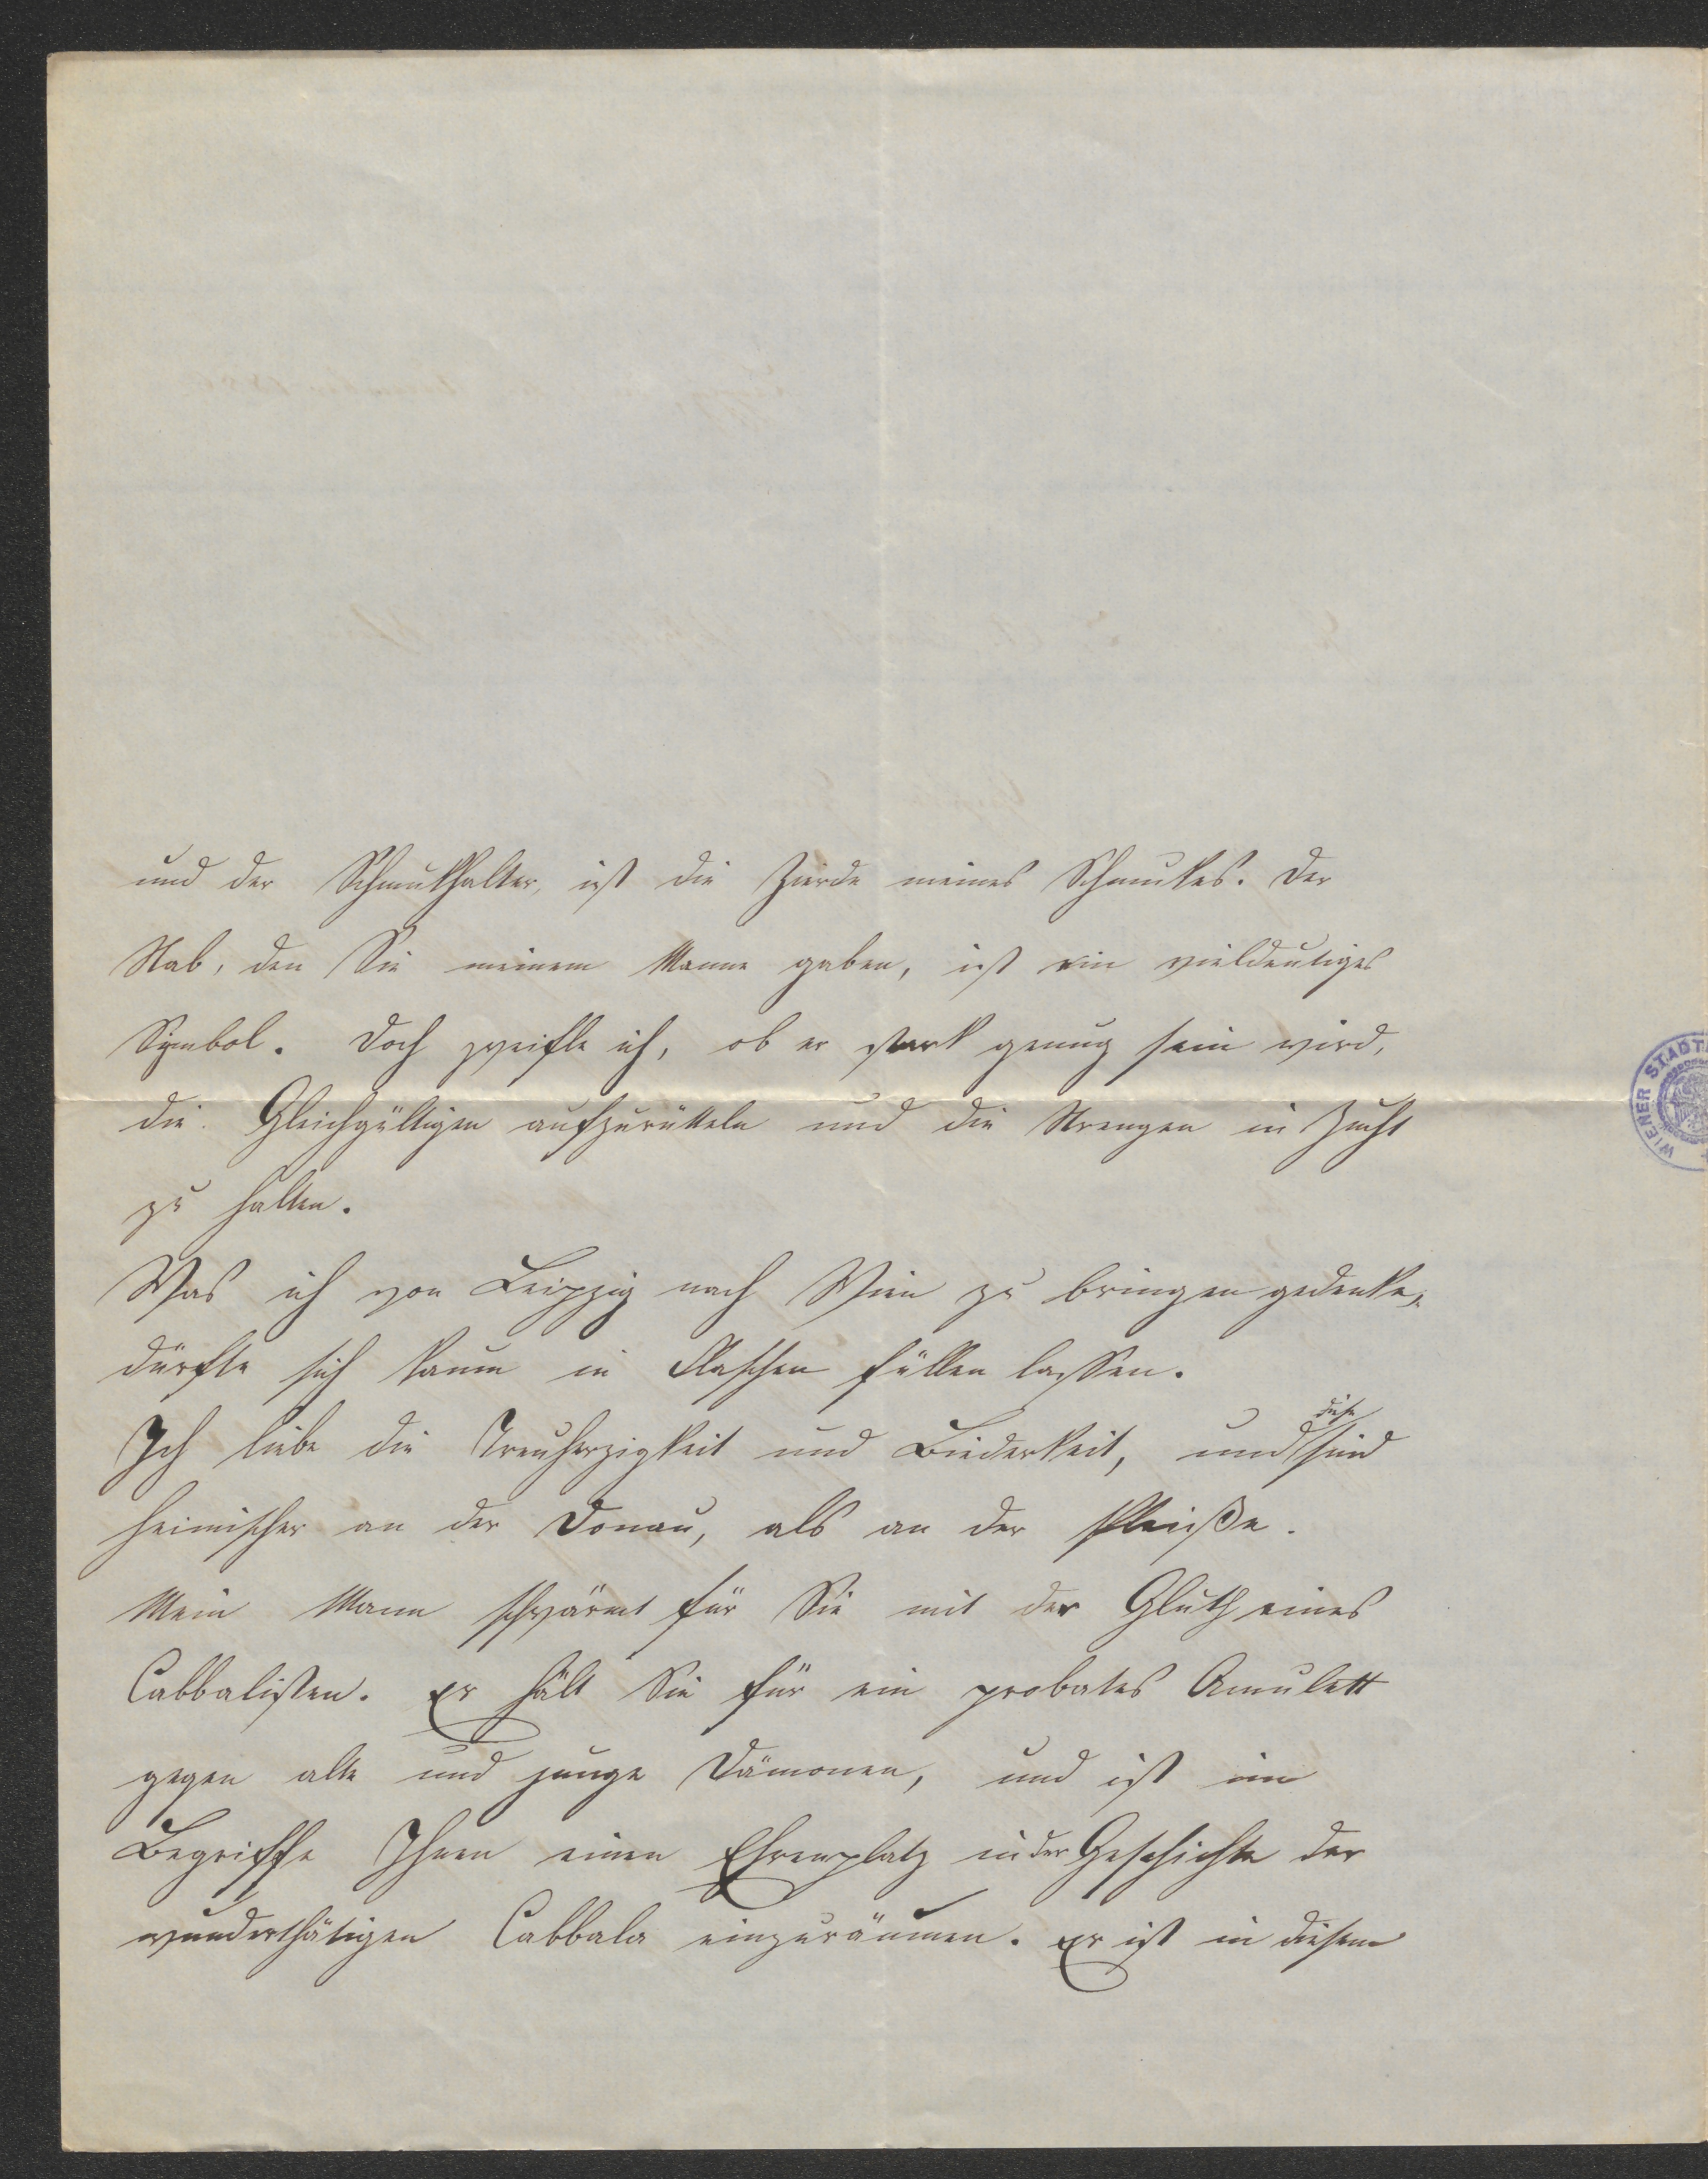 und der Schmukhalter, ist die Zierde meines Schmukes. Der
Stab, den Sie meinem Manne gaben, ist ein vieldeutiges
Symbol. Doch zweifle ich, ob er stark genug sein wird,
die Gleichgültigen aufzurütteln und die Strengen in Zucht
zu halten.
Was ich von Leipzig nach Wien zu bringen gedenke,
dürfte sich kaum in Flaschen füllen lassen.
Ich liebe die Treuherzigkeit und Biederkeit, und diese sind
heimischer an der Donau, als an der Pleiße.
Mein Mann schwärmt für Sie mit der Gluth eines
Cabbalisten. Er hält Sie für ein probates Amulett
gegen alte und junge Dämonen, und ist im
Begriffe Ihnen einen Ehrenplatz in der Geschichte der
wunderthätigen Cabbala einzuräumen. Er ist in diesem
WIENER STADT